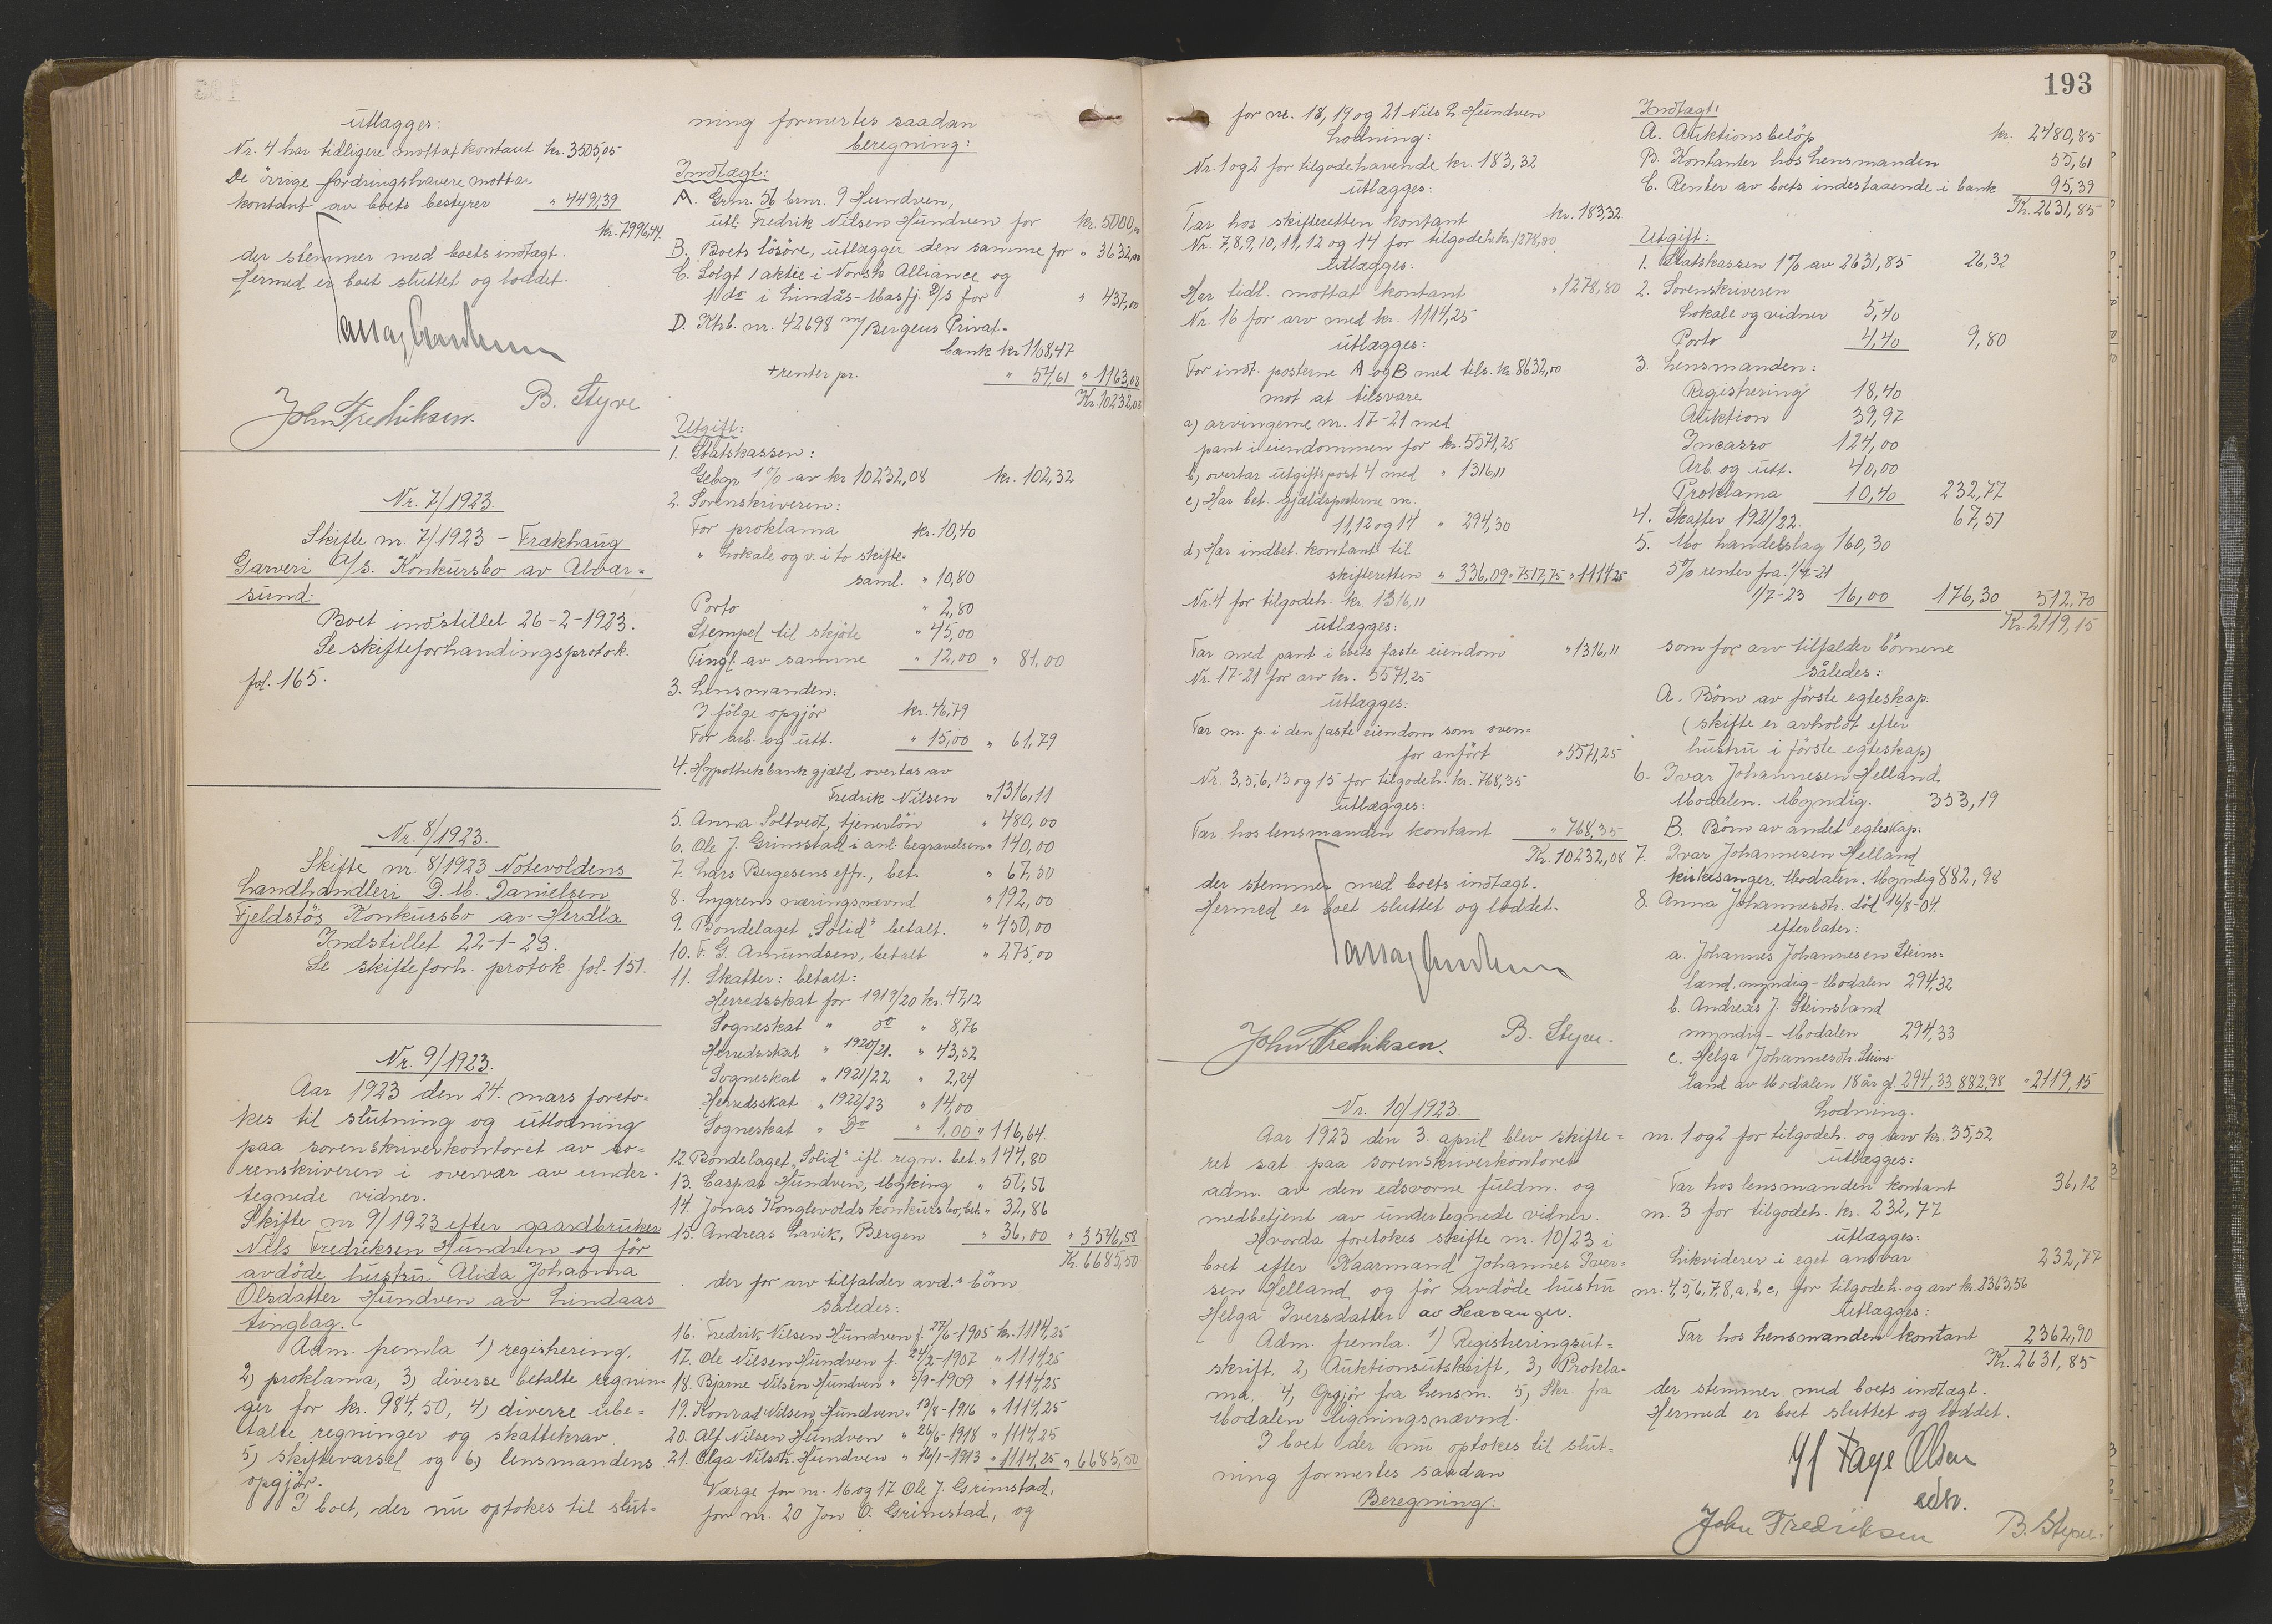 utlægges:
Nr. 4 har tidligere mottat kontant kr. 3505,05
De övrige fordringshavere mottar
kontant av boets bestyrer " 4491,39
kr. 7996,44.
der stemmer med boets indtægt.
Hermed er boet sluttet og loddet.
John Fredriksen. B. Styve
Nr. 7/1923.
Skifte nr. 7/1923 - Frækhaug
Garveri A/S. Konkursbo av Alvær=
sund.
Boet indstillet 26-2-1923.
Se skifteforhandingsprotok.
fol. 165.
Nr. 8/1923.
Skifte nr. 8/1923 Notevoldens
Landhandleri D. M. Danielsen
Fjeldstös Konkursbo av Herdla
Indstillet 22-1-23.
Se skifteforh. protok. fol. 151.
Nr. 9/1923.
Aar 1923 den 24. mars foreto=
kes til slutning og utlodning
paa sorenskriverkontoret av so=
renskriveren i overvær av under=
tegnede vidner.
Skifte nr 9/1923 efter gaardbruker
Nils Fredriksen Hundven og för
avdöde hustru Alida Johanna
Olsdatter Hundven av Lindaas
tinglag.
Adm. fremla 1) registrering,
2) proklama, 3) diverse betalte regnin=
ger for kr. 984,50, 4) diverse ube=
talte regninger og skattekrav
5) skiftevarsel og 6) lensmandens
opgjör.
I boet, der nu optokes til slut=
ning formertes saadan
beregning:
Indtægt:
A. Grnr. 56 brnr. 9 Hundven,
utl. Fredrik Nilsen Hundven for kr. 5000,00
B. Boets lösöre, utlægges den samme for " 3632,00
C. Solgt 1 aktie i Norsk Alliance og
1 do i Lindås-Masfj. D/S for " 437,00
D. Khb. nr. 42698 m/Bergens Privat=
bank kr 1108,47
+ renter pr. " 54,61 " 1163,08
Kr. 10232,08
Utgift:
1. Statskassen:
Gebyr 1% av kr 10232,08 kr. 102,32
2. Sorenskriveren:
For proklama kr. 10,40
" Lokale og v. i to skifte=
saml. " 10,80
Porto " 2,80
Stempel til skjöte " 45,00
Tingl. av samme " 12,00 " 81,00
3. Lensmanden:
I fölge opgjör kr. 46,79
For arb. og utt. " 15,00 " 61,79
4. Hypothekbankgjæld, overtas av
Fredrik Nilsen " 1316,11
5. Anna Soltvedt, tjenerlön " 480,00
6. Ole J. Grimstad i anl. begravelsen " 140,00
7. Lars Bergesens eftf., bet. " 67,50
8. Lygrens næringsnævnd " 192,00
9. Bondelaget „Solid" betalt. " 450,00
10. F. G. Amundsen, betalt " 275,00
11. Skatter: betalt:
Herredsskat for 1919/20 kr. 47,12
Sogneskat " do " 8,76
Herredsskat " 1920/21. " 43,52
Sogneskat " 1921/22 " 2,24
Herredsskat " 1922/23 " 14,00
Sogneskat " Do " 1,00 " 116,64.
12. Bondelaget „Solid" ifl. regn. bet. " 144,80
13. Caspar Hundven, Myking " 50,56
14. Jonas Konglevolds konkursbo, bet. " 32,86
15. Andreas Lavik, Bergen " 36,00 " 3546,58
Kr. 6685,50
der for arv tilfalder avd.s börn
således:
16. Fredrik Nilsen Hundven f. 27/6-1905 kr. 1114,25
17. Ole Nilsen Hundven f. 24/2-1907 " 1114,25
18. Bjarne Nilsen Hundven " 5/9-1909 " 1114,25
19. Konrad Nilsen Hundven " 13/8-1916 " 1114,25
20. Alf Nilsen Hundven " 26/6-1918 " 1114,25
21. Olga Nilsdtr. Hundven " 16/1-1913 " 1114,25 " 6685,50
Værge for nr. 16 og 17 Ole J. Grimstad,
for nr. 20 Jon O. Grimstad, og
193
for nr. 18, 19 og 21 Nils L. Hundven
Lodning:
Nr. 1 og 2 for tilgodehavende kr. 183,32
utlægges:
Tar hos skifteretten kontant kr. 183,32.
Nr. 7,8,9,10,11,12 og 14 for tilgodeh. kr. 1278,80
utlægges:
Har tidl. mottat kontant " 1278,80
Nr. 16 for arv med kr. 1114,25
utlægges:
For indt. posterne A og B med tils. kr. 8632,00
mot at tilsvare
a) arvingerne nr. 17-21 med
pant i eiendommen for kr. 5571,25
b) overtar utgiftspost 4 med " 1316,11
c) Har bet. gjældsposterne nr.
11, 12 og 14 " 294,30
d) Har indbet. kontant til
skifteretten " 336,09 " 7517,75 " 1114,25
Nr. 4 for tilgodeh. kr. 1316,11
utlægges:
Tar med pant i boets faste eiendom " 1316,11
Nr. 17-21 for arv kr. 5571,25
utlægges:
Tar m. p. i den faste eiendom som oven=
for anfört " 5571,25
Nr. 3, 5, 6, 13 og 15 for tilgodeh. kr. 768,35
utlægges:
Tar hos lensmanden kontant " 768,35
Kr. 10232,08
der stemmer med boets indtægt.
Hermed er boet sluttet og loddet.
John Fredriksen. B. Styve.
Nr. 10/1923.
Aar 1923 den 3. april blev skifte=
ret sat paa sorenskriverkontoret
adm. av den edsvorne fuldm. og
medbetjent av undertegnede vidner.
Hvorda foretokes skifte nr. 10/23 i
boet efter Kaarmand Johannes Iver=
sen Helland og för avdöde hustru
Helga Iversdatter av Hexanger.
Adm. fremla. 1) Registreringsut=
skrift, 2) Auktionsutskrift, 3) Prokla=
ma, 4) Opgjör fra Lensm. 5) Skr. fra
Modalen ligningsnævnd.
I boet der nu optokes til slut=
ning formertes saadan
Beregning:
Indtægt:
A. Auktionsbelöp kr. 2480,85
B. Kontanter hos lensmanden 55,61
C. Renter av boets indestaaende i bank 95,39
Kr. 2631,85
Utgift:
1. Statskassen 1% av 2631,85 26,32
2. Sorenskriveren
Lokale og vidner 5,40
Porto 4,40 9,80
3. Lensmanden:
Registrering 18,40
Auktion 39,97
Incasso 124,00
Arb. og utt. 40,00
Proklama 10,40 232,77
4. Skatter 1921/22. 67,51
5. Mo handelslag 160,30
5% renter fra 1/7-21
1/7-23 16,00 176,30 512,70
Kr. 2119,15
som for arv tilfalder börnene
således:
A. Börn av förste egteskap.
(skifte er avholdt efter
hustru i förste egteskap)
6. Ivar Johannesen Helland
Modalen. Myndig. 353,19
B. Börn av andet egteskap:
7. Ivar Johannesen Helland
Modalen. Myndig 882,98
8. Anna Johannesdtr. död 16/8-04.
efterlater:
a. Johannes Johannesen Steins=
land, myndig - Modalen 294,32
b. Andreas J. Steinsland
myndig - Modalen 294,33
c. Helga Johannesdtr. Steins-
land av Modalen 18 år gl. 294,33 882,98 " 2119,15
Lodning.
nr. 1 og 2 for tilgodeh. og arv kr. 35,52
utlægges:
Tar hos lensmanden kontant 36,12
nr. 3 for tilgodeh. kr. 232,77
utlægges:
Likviderer i eget ansvar 232,77
nr. 4, 5, 6, 7, 8, a, b, c, for tilgodeh. og arv kr. 2363,56
utlægges:
Tar hos lensmanden kontant 2362,90
Kr. 2631,85
der stemmer med boets indtægt.
Hermed er boet sluttet og loddet.
Faye Olsen
edsv.
John Fredriksen B. Styve.